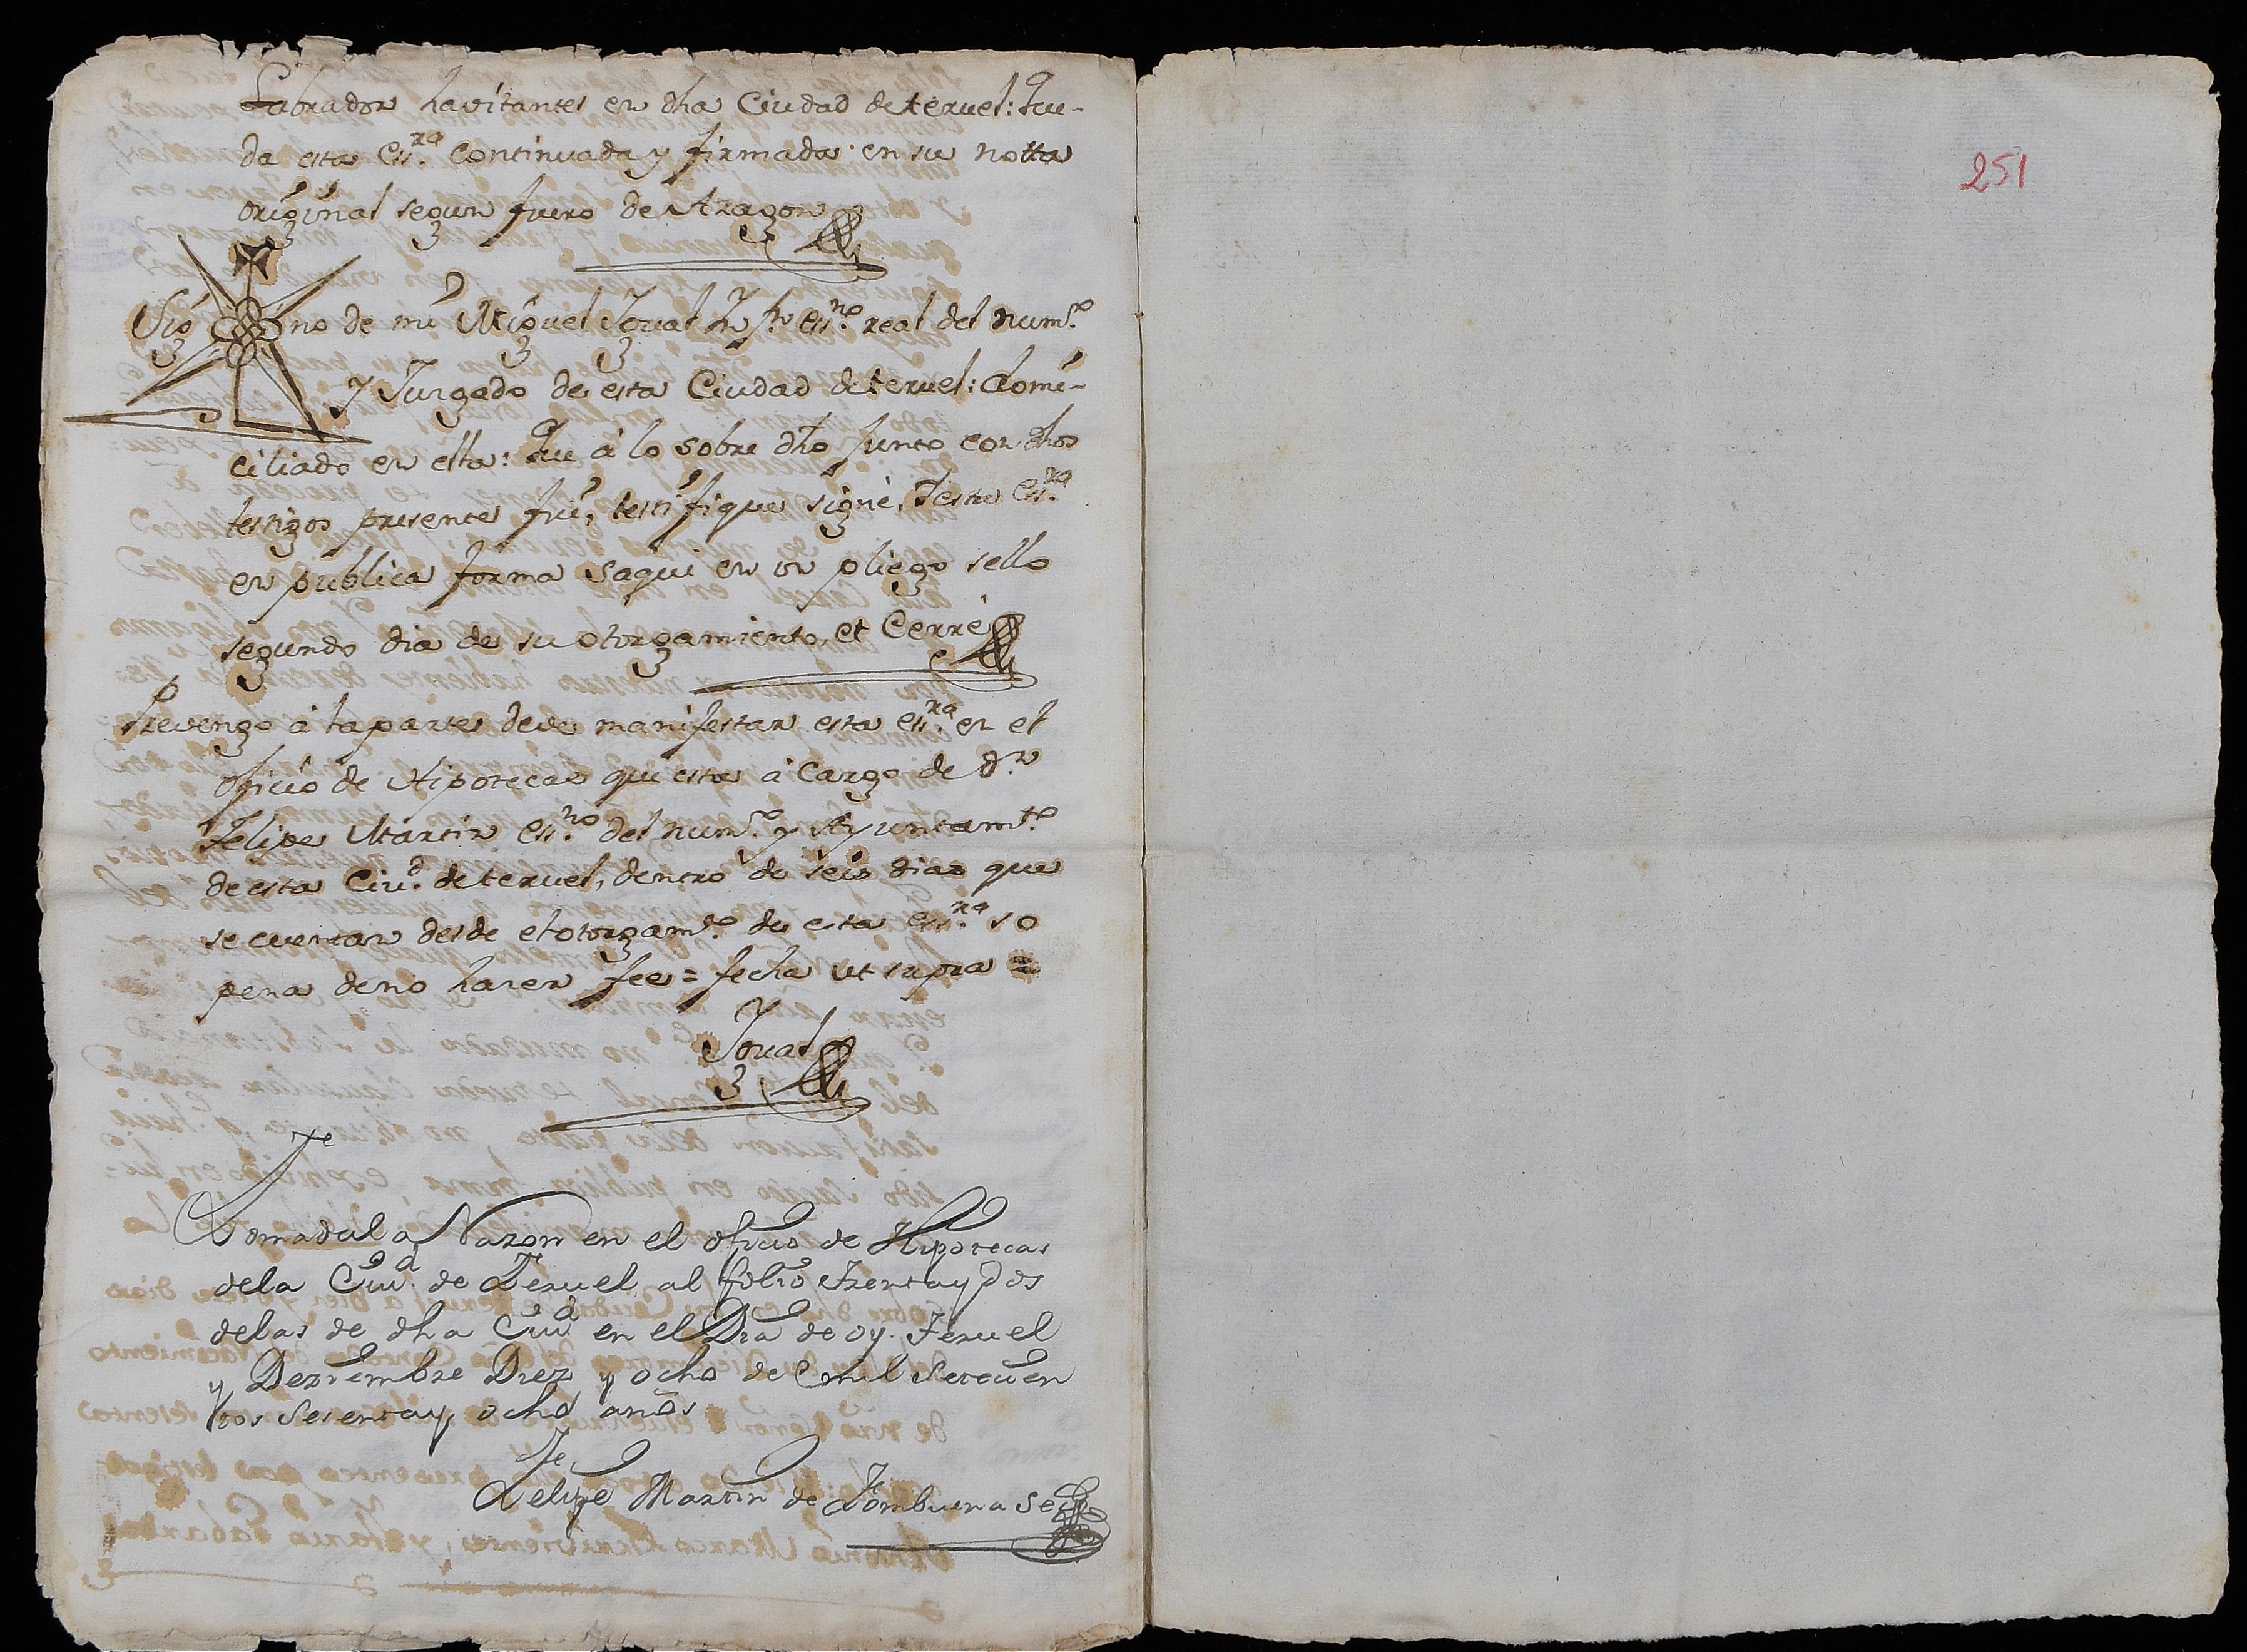 Labrador havitantes en dha Ciudad de teruel: Que-
da esta es.ra continuada y firmada en su notta
original segun fuero de Aragon
Sig no de mi Miguel Joval es.no real del num.o
y Jurgado de esta Ciudad de teruel: domi-
ciliado en ella: Que à lo sobre dho junto con dhos
testigos presente fui, testifique signé, Yestta es.ra
en publica forma saqui en un pliego sello
segundo dia de su otorgamiento, et Cerré
Prevengo à la parte deve manifestar esta es.ra en el
oficio de Hipotecas que esta à Cargo de d.n
Felipe Martin es.no del num.o y Ayuntam.to
de esta Ciu.d de teruel, dentro de seis dias que
se cuentan desde el otorgam.to de esta ess.ra so
pena de no hacer fee = fecha ut supra =
Joval
Tomadala Razon en el oficio de Hipotecas
dela Ciu.d de Teruel al folio trenta y dos
delas de dha Ciu.d en el Dia de oy. Teruel
y Deziembre Diez y ocho de mil Setecien
tos Sesenta y ocho años
Felipe Martin de Jombuena Se.rio
251